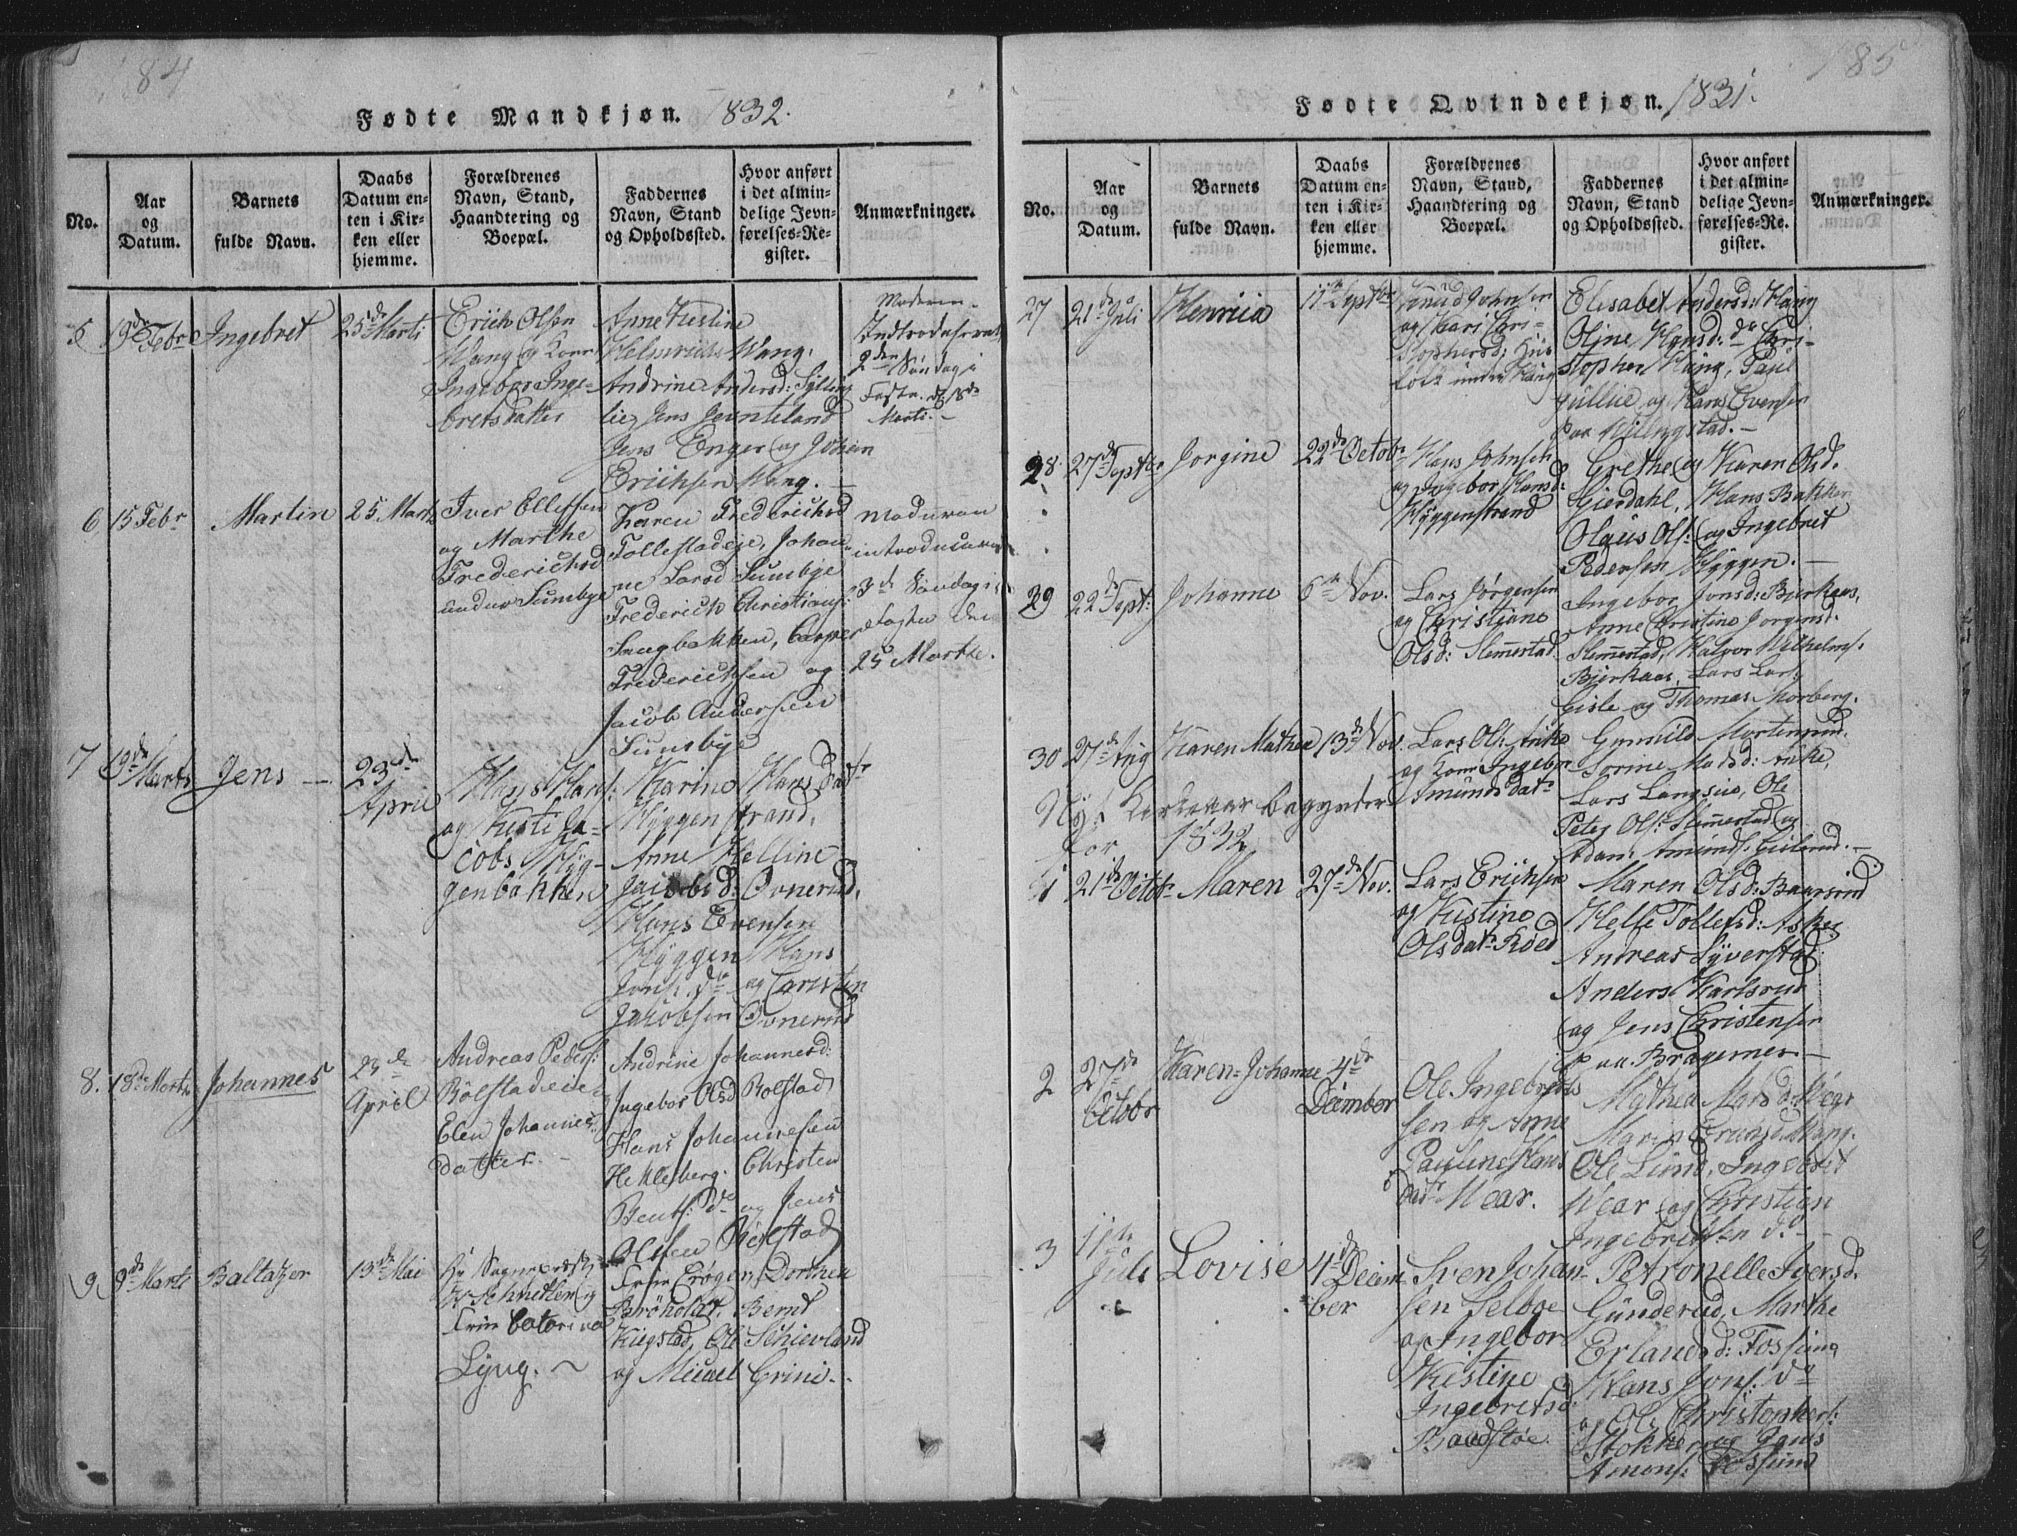 184
Fødte Mandkjøn. 1832.
No.
Aar
og
Datum.
Barnets
fulde Navn.
Daabs
Datum en-
ten i Kir-
ken eller
hjemme.
Forældrenes
Navn, Stand,
Haandtering og
Boepæl.
Faddernes
Navn, Stand
og Opholdssted.
Hvor anført
i det almin-
delige Jevn-
førelses-Re-
gister.
Anmærkninger.
5
19de Febr
Ingebret
25de Marti
Erich Olsen
Wang og Kone
Ingebor Inge-
bretsdatter
Anne Kistine
Helmrichs Wang,
Andrine Andersd: Sylling
lie, Jens Jevnteland
Jens Enger og Johan
Erichsen Wang. —
Moderen
2den Søndag i
Faste. d. 18de
Marti. —
6
15 Febr
Martin
25 Marti
Iver Ellefsen
og Marthe
Frederichsd
under Sumbye
Karen Frederichsd
Tollefstadeje, Johan-
ne Larsd Sumbye
Frederich Christians:
Snugbakken, Casper
Frederichsen og
Jacob Andersen
Sumbye
Moderen
introduceret
3de Søndag i
Fasten den
25 Martii.
7
19de Marts
Jens —
23de
April
Hans Hans:
og Kisti Ja-
cobs Hyg-
genbakken
Karine Hans Datr
Hyggenstrand,
Anne Helline
Jacobsd: Ovnerud,
Hans Evensen
Hyggen Hans
Jons: do og Christen
Jacobsen Ovnerud
8.
18de Marts
Johannes
23de
April
Andreas Peders:
Bölstadeie
Elen Johannes-
datter. —
Andrine Johannesd:
Ingebor Olsd Bolstad
Hans Johannesen
Heklesberg. Christen
Bents: do og Jens
Olsen Bölstad
9
9de Marti
Baltazer
13de Mai
Hr Sogneprest
H Schnitler og
Frue Catarina
Lyng. ~
Frue Crøger, Dorthea
Bröholdt, Bernt
Kiegstad, Ole Schievland
og Micael Grini. -
185
Fødte Qvindekjøn. 1831.
No.
Aar
og
Datum.
Barnets
fulde Navn.
Daabs
Datum en-
ten i Kir-
ken eller
hjemme.
Forældrenes
Navn, Stand,
Haandtering og
Boepæl.
Faddernes
Navn, Stand
og Opholdssted.
Hvor anført
i det almin-
delige Jevn-
førelses-Re-
gister.
Anmærkninger.
27
21de Juli
Henrica
11te Septbr
Knud Johnsen
og Kari Cri-
stophersd: Hus
folk under Häug
Elisabet Andersd: Häug
Oline Hansd: do Cri-
stopher Häug, Paul
Gullie og Hans Evensen
paa Killingstad. —
28
27de Septbr
Jorgine
22de Octobr
Hans Johnsen
og Ingebor Hansd:
Hyggenstrand
Grethe og Karen Olsd.
Gierdahl, Hans Bakker
Olaus Ols: og Ingebret
Pedersen Hyggen. —
29
22de Sept:
Johanne
6te Nov.
Lars Jörgensen
og Christiane
Olsd: Slemmestad
Ingebor Jonsd: Bierkaas,
Anne Christine Jorgensd.
Slemmestad, Halvor Wilhelms:
Bierkaas, Lars Lars:
Gisle og Thomas Morberg.
30
27de Aug
Karen Mathea
13de Nov.
Lars Ols:
og Kone Ingebor
Amundsdatr
Gunnild Mortensrud,
Lars Langsee, Ole
Peter Ols: Slemmestad og
Adam Amunds. Gislerud. —
Nyt Kirkeaar begynder
for 1832
1
21de Octobr
Maren
27de Nov.
Lars Erichsen
og Kistine
Olsdatr Röed
Maren Olsd: Baarsrud
Helle Tollefsd: Asker
Andreas Syverstad
Anders Karlsrud
og Jens Christensen
paa Bragernes —
2
27de
Octobr
Karen-Johanne
4de
Decembor
Ole Ingebrets
sen og Anne
Pauline Hans
datr Wear.
Mathea Matsd: Wear
Ole Lund, Ingebret
Wear og Christian
Ingebretsen do —
3
11te
Juli
Lovise
4de
Decem-
ber
Sven Johan-
sen Selvoe
og Ingebor
Kistine
Ingebretsd:
Baadstøe.
Petronelle Iversd.
Günderud, Marthe
Erlandsd: Fossum,
Hans Jons: do
og Ole Christophers:
Stokker og Hans
Amons: Fossum